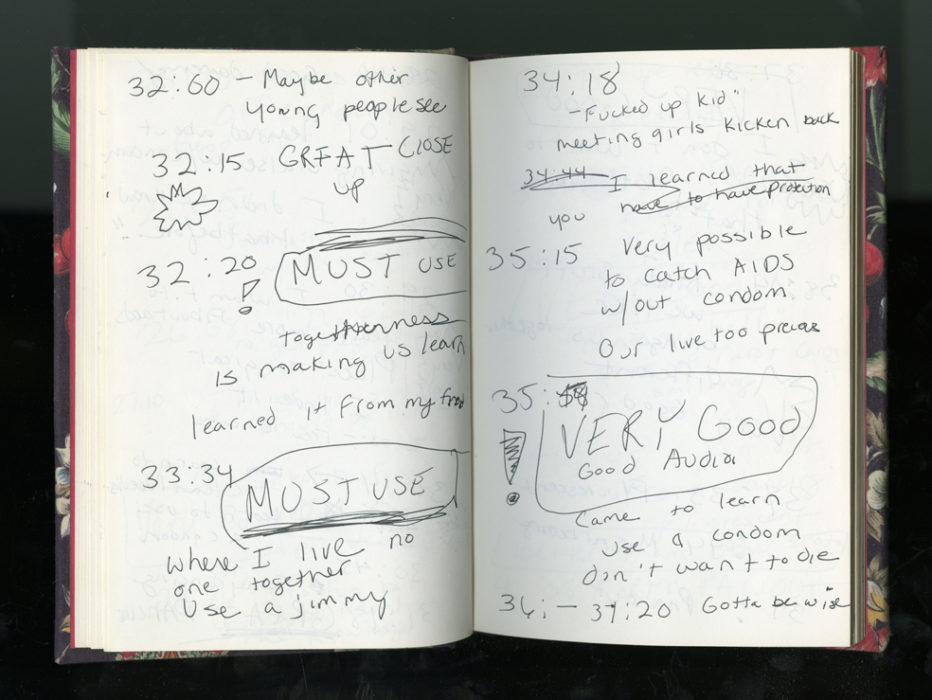 32:00 - Maybe other
young people see
32:15 GREAT CLOSE
up
32:20 MUST USE
togetherness
is making us learn
learned it from my
33:34 MUST USE
where I live no
one together
use a jimmy
34:18
- Fucked up kid"
meeting girls kicken back
34:44 I learned that
you have to have protection
35:15 Very possible
to catch AIDS
w/out condom
Our live too
35: VERY Good
! Good Audio
Came to learn
use a condom
don't want to die
36: - 37:20 Gotta be wise